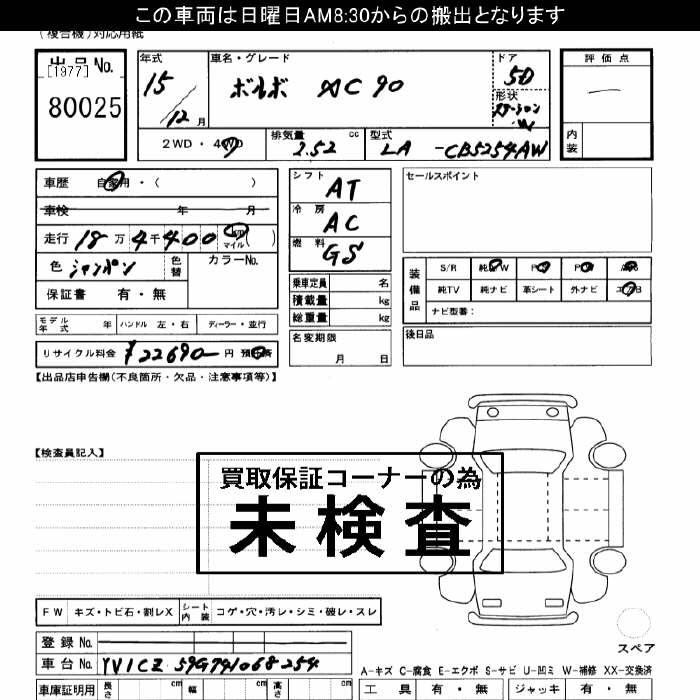 この車両は日曜日AM8:30からの搬出となります
(複合機)対応用紙
出品No.
[1977]
80025
年式
15
12月
車名・グレード
ボルボ XC90
ドア
5D
形状
ステーションW
評価点
—
内装
2WD・4WD
排気量 2.52 cc
型式 LA -CB5254AW
車歴 自家用・( )
車検 年 月
走行 18万4千400 km マイル ( )
色 シャンパン 色替
カラーNo.
保証書 有・無
シフト AT
冷房 AC
燃料 GS
乗車定員 名
積載量 kg
総重量 kg
名変期限
月 日
セールスポイント
装備品
S/R 純正AW PS PW
純TV 純ナビ 革シート 外ナビ エアB
ナビ型番:
後日品
モデル年式 年 ハンドル 左・右 ディーラー・並行
リサイクル料金 ¥22690- 円 預託済
【出品店申告欄(不良箇所・欠品・注意事項等)】
【検査員記入】
買取保証コーナーの為
未検査
FW キズ・トビ石・割レX シート内装 コゲ・穴・汚レ・シミ・破レ・スレ
登録No.
車台No. YV1CZ 59G741068254
スペア
A-キズ C-腐食 E-エクボ S-サビ U-凹ミ W-補修 XX-交換済
車庫証明用 長さ cm 幅 cm 高さ cm
工具 有・無 ジャッキ 有・無